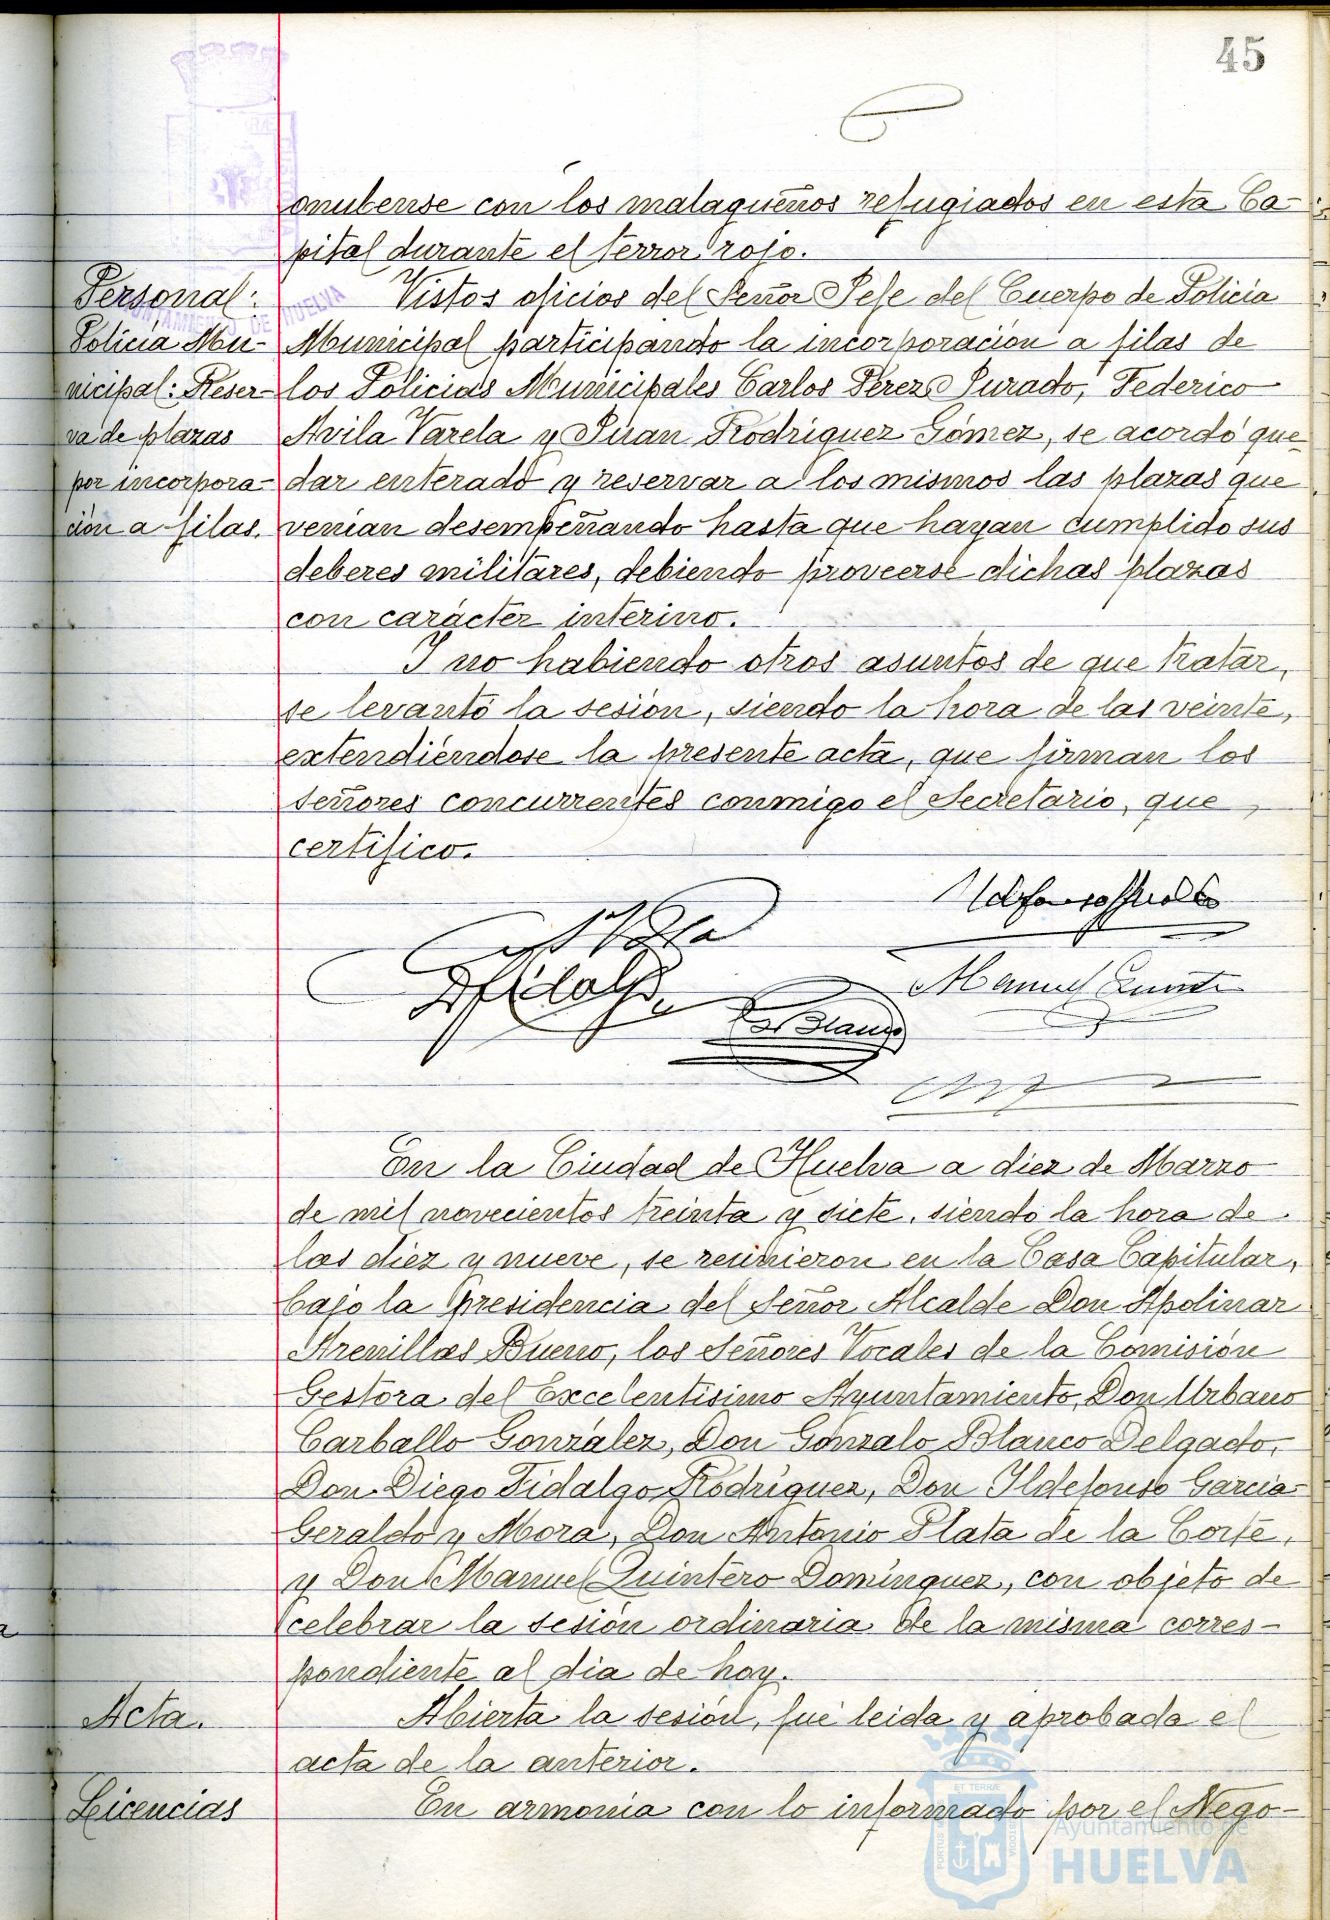 45
onubense con los malagueños refugiados en esta Ca-
pital durante el terror rojo.
Personal:
Policía Mu-
nicipal: Reser-
va de plazas
por incorpora-
ción a filas.
Vistos oficios del Señor Jefe del Cuerpo de Policía
Municipal participando la incorporación a filas de
los Policias Municipales Carlos Pérez Jurado, Federico
Avila Varela y Juan Rodríguez Gómez, se acordó que-
dar enterado y reservar a los mismos las plazas que
venían desempeñando hasta que hayan cumplido sus
deberes militares, debiendo proveerse dichas plazas
con carácter interino.
Y no habiendo otros asuntos de que tratar,
se levantó la sesión, siendo la hora de las veinte,
extendiéndose la presente acta, que firman los
señores concurrentes conmigo el Secretario, que
certifico.
Manuel Quintero
Blanco
En la Ciudad de Huelva a diez de Marzo
de mil novecientos treinta y siete, siendo la hora de
las diez y nueve, se reunieron en la Casa Capitular,
bajo la presidencia del Señor Alcalde Don Apolinar
Arenillas Bueno, los Señores Vocales de la Comisión
Gestora del Excelentísimo Ayuntamiento, Don Urbano
Carballo González, Don Gonzalo Blanco Delgado,
Don Diego Fidalgo Rodríguez, Don Ildefonso García-
Geraldo y Mora, Don Antonio Plata de la Corte,
y Don Manuel Quintero Domínguez, con objeto de
celebrar la sesión ordinaria de la misma corres-
pondiente al día de hoy.
Acta.
Abierta la sesión, fué leida y aprobada el
acta de la anterior.
Licencias
En armonía con lo informado por el Nego-
AYUNTAMIENTO DE HUELVA
Ayuntamiento de
HUELVA